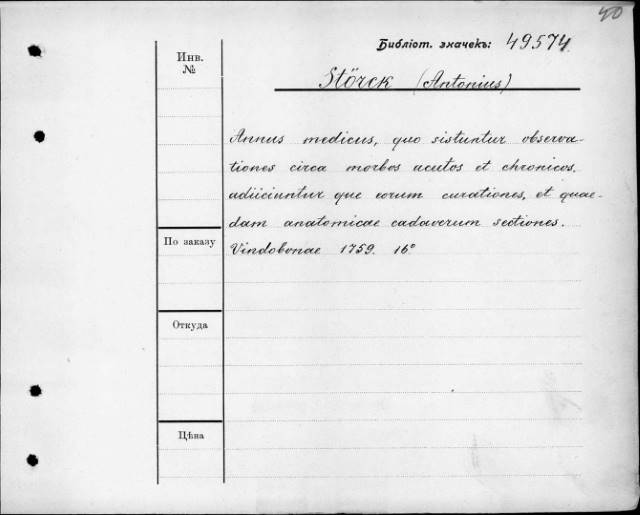 40
Библіот. значекъ: 49574.
Инв.
№
Störck (Antonius)
Annus medicus, quo sistuntur observa-
tiones circa morbos acutos et chronicos,
adiiciuntur que eorum curationes, et quae-
dam anatomicae cadaverum sectiones.
По заказу
Vindobonae 1759. 16°
Откуда
Цѣна